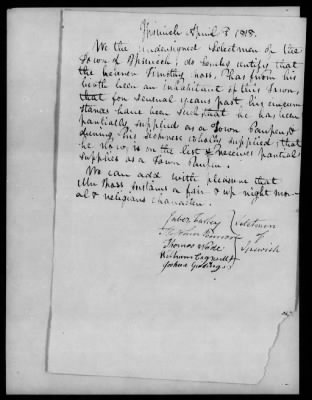 Ipswich April 8 1818.
We the undersigned Selectmen of the
Town of Ipswich, do hereby certify that
the bearer Timothy Ross, has from his
birth been an inhabitant of this Town,
that for several years past his circum
stances have been such that he has been
partially supplied as a Town Pauper, &
during his sickness wholly supplied, that
he now is on the list & receives partial
supplies as a Town Pauper.
We can add with pleasure that
Mr Ross sustains a fair & up right mor-
al & religious character.
Jabez Farley
Selectmen
of
Thomas Wade
Ipswich
William Cogswell
Joshua Giddings